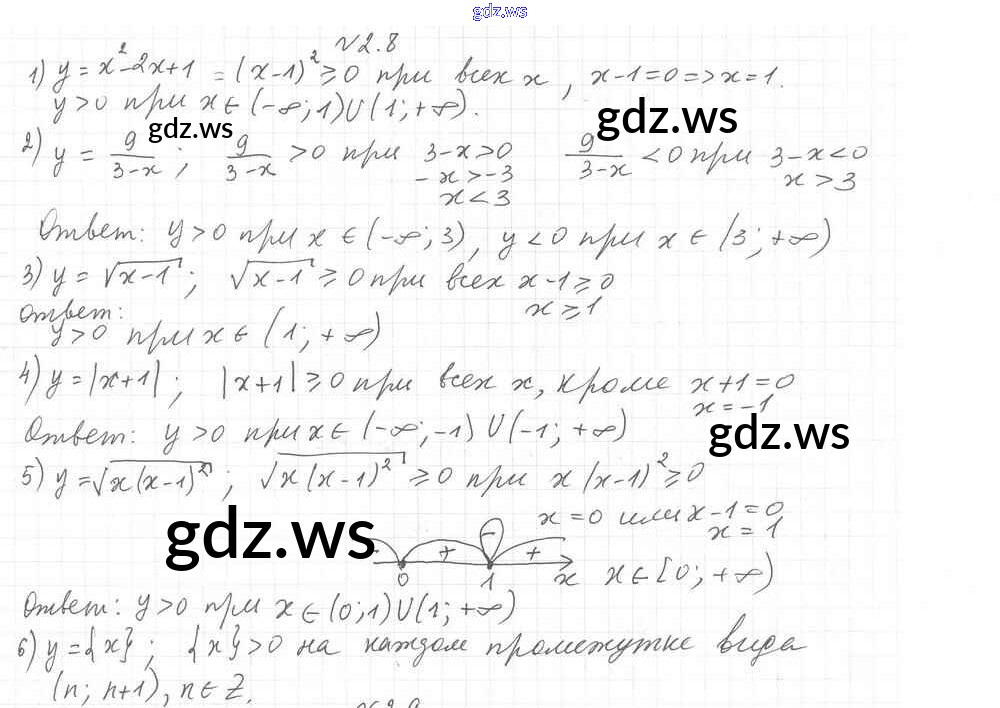 gdz.ws
№2.8
1) y = x²-2x+1 = (x-1)² ≥ 0 при всех x, x-1=0 => x=1.
y>0 при x ∈ (-∞; 1) ∪ (1; +∞).
gdz.ws
gdz.ws
2) y = 9/(3-x); 9/(3-x) > 0 при 3-x>0 9/(3-x) < 0 при 3-x<0
-x>-3 x>3
x<3
Ответ: y>0 при x ∈ (-∞; 3), y<0 при x ∈ (3; +∞)
3) y = √(x-1); √(x-1) ≥ 0 при всех x-1 ≥ 0
x ≥ 1
Ответ:
y>0 при x ∈ (1; +∞)
4) y = |x+1|; |x+1| ≥ 0 при всех x, кроме x+1=0
x=-1
Ответ: y>0 при x ∈ (-∞; -1) ∪ (-1; +∞)
gdz.ws
5) y = √(x(x-1)²); √(x(x-1)²) ≥ 0 при x(x-1)² ≥ 0
x=0 или x-1=0
x=1
gdz.ws
- + - +
0 1 x x ∈ [0; +∞)
Ответ: y>0 при x ∈ (0; 1) ∪ (1; +∞)
6) y = {x}; {x}>0 на каждом промежутке вида
(n; n+1), n ∈ Z.